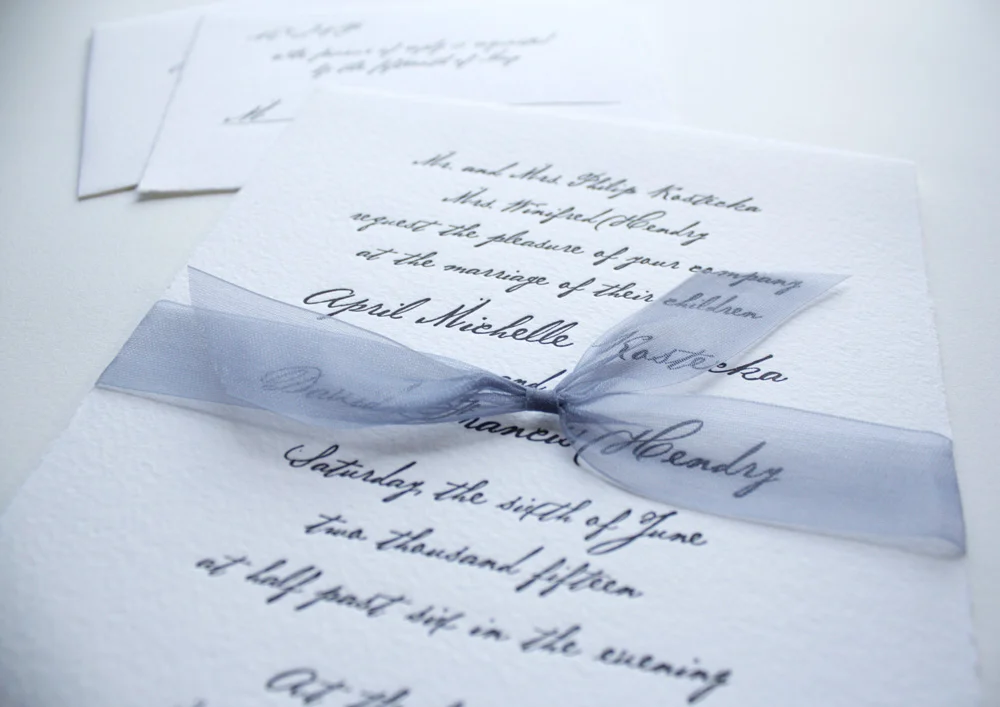 the favour of reply is requested
by the fifteenth of May
M
Mr. and Mrs. Philip Kosticka
Mrs. Winifred Hendry
request the pleasure of your company
at the marriage of their children
April Michelle Kosticka
and
Francis Hendry
Saturday, the sixth of June
two thousand fifteen
at half past six in the evening
At the